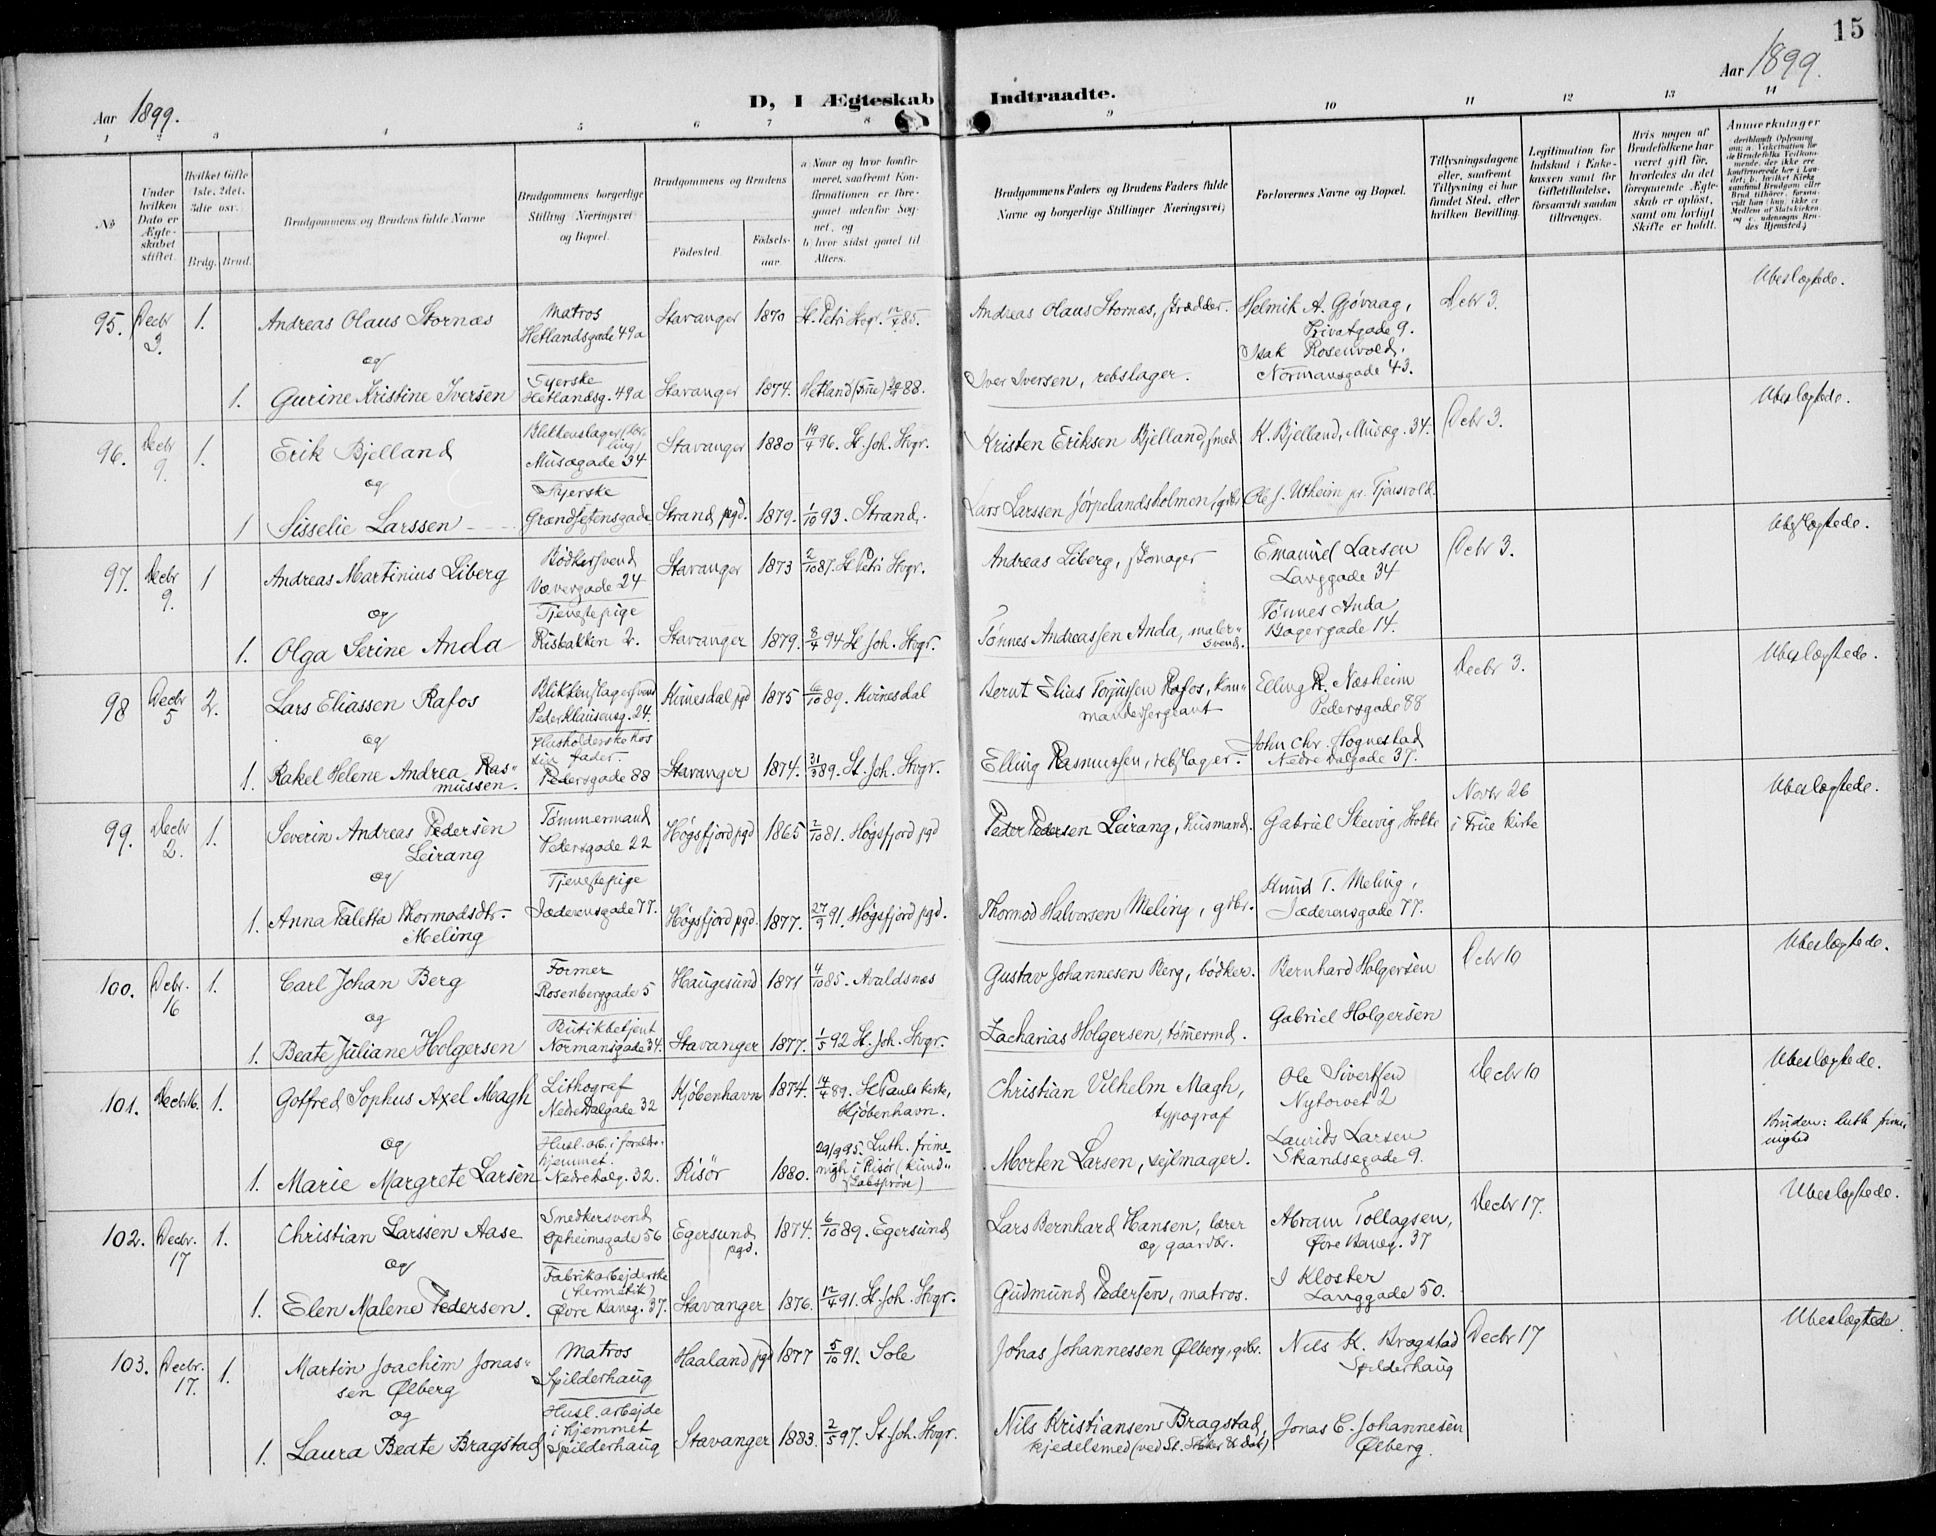 15
Aar 1899.
Aar 1899.
D, I Ægteskab Indtraadte.
1 2 3 4 5 6 7 8 9 10 11 12 13 14
No
Under hvilken Dato er Ægteskabet stiftet.
Hvilket Gifte 1ste. 2det. 3die osv.
Brdg. Brud.
Brudgommens og Brudens fulde Navne
Brudgommens borgerlige Stilling Næringsvei og Bopæl.
Brudgommens og Brudens
Födested.
Födselsaar.
a Naar og hvor konfirmeret, saafremt Konfirmationen er foregaaet udenfor Sognet, og
b hvor sidst gaaet til Alters.
Brudgommens Faders og Brudens Faders fulde Navne og borgerlige Stillinger Næringsvei,
Forlovernes Navne og Bopæl.
Tillysningsdagene eller, saafremt Tillysning ei har fundet Sted, efter hvilken Bevilling.
Legitimation for Indskud i Enkekassen samt for Giftetilladelse, forsaavidt saadan tiltrænges.
Hvis nogen af Brudefolkene har været gift för, hvorledes da det foregaaende Ægteskab er oplöst, samt om lovligt Skifte er holdt.
Anmærkninger
95. Decbr 3. 1. Andreas Olaus Stornæs Matros Hetlandsgade 49a Stavanger 1870 St. Petri Stvgr. 12/4 85. Andreas Olaus Stornæs, skrædder. Helmik A. Gjövaag, Privatgade 9. Decbr 3. Ubeslægtede.
og
1. Gurine Kristine Iversen Syerske Hetlandsg. 49a Stavanger 1874. Hetland (Frue) 88. Iver Iversen, rebslager. Isak Rosenvold, Normansgade 43.
96. Decbr 9. 1. Erik Bjelland Musægade 34 Stavanger 1880 19/4 96. St. Joh. Stvgr. Kristen Eriksen Bjelland, smed K. Bjelland, Musæg. 34. Decbr 3. Ubeslægtede.
og
1 Sisselie Larssen Syerske Strand pgd. 1879. 1/10 93. Strand. Lars Larssen Jørpelandsholmen, gdbr. Ole J. Utheim pr. Tjensvold.
97. Decbr 9. 1 Andreas Martinius Liberg Bödkersvend Vævergade 24 Stavanger 1873 2/10 87. St Petri Stvgr. Andreas Liberg, skomager Emanuel Larsen Langgade 34 Decbr 3. Ubeslægtede.
og
1. Olga Serine Anda Tjenestepige Risbakken 2. Stavanger 1879. 8/4 94 St Joh. Stvgr. Tönnes Andreassen Anda, malersvend. Tönnes Anda Bagergade 14.
98 Decbr 5 2. Lars Eliassen Rafos Blikkenslagersvend Peder Klausensg. 24. Kvinesdal pgd 1875 6/10 89. Kvinesdal Bernt Elius Torjussen Rafos, kommandersergeant Elling R. Næsheim Pedersgade 88 Decbr 3. Ubeslægtede.
og
1. Rakel Helene Andrea Rasmussen. Husholderske hos sin fader. Pedersgade 88 Stavanger 1874. 31/3 89. St. Joh. Stvgr. Elling Rasmussen, rebslager. John Chr. Hognestad Nedre Dalgade 37.
99. Decbr 2. 1. Severin Andreas Pedersen Leirang Tømmermand Pedersgade 22 Högsfjord pgd 1865 2/10 81. Högsfjord pgd Peder Pedersen Leirang, husmand. Gabriel Skeivig, Stokke Novbr 26 i Frue Kirke Ubeslægtede.
og
1. Anna Taletta Thormodsdtr. Meling Tjenestepige Jæderensgade 77. Högsfjord pgd. 1877. 27/9 91. Högsfjord pgd. Thormod Halvorsen Meling, gdbr. Knud T. Meling, Jæderensgade 77.
100. Decbr. 16 1. Carl Johan Berg Former Rosenberggade 5 Haugesund 1871 4/10 85. Avaldsnæs Gustav Johannesen Berg, bödker. Bernhard Holgersen Decbr 10 Ubeslægtede.
og
1. Beate Juliane Holgersen Butikbetjent Normansgade 34. Stavanger 1877. 1/5 92 St. Joh. Stvgr. Zacharias Holgersen, tömermd. Gabriel Holgersen
101. Decbr 16. 1. Gotfred Sophus Axel Magh Lithograf Nedre Dalgade 32 Kjöbenhavn 1874. 14/4 89. St Pauls kirke, Kjöbenhavn. Christian Vilhelm Magh, typograf Ole Sivertsen Nytorvet 2 Decbr 10 Ubeslægtede.
og
1. Marie Margrete Larsen Husl. arb. i forældrehjemmet. Nedre Dalg. 32. Risör 1880. 29/9 95. Luth. frimenigh i Risör (kundskabsprøve) Morten Larsen, sejlmager. Laurids Larsen Skandsegade 9. Bruden: luth frimenighed
102. Decbr. 17 1. Christian Larssen Aase Snedkersvend Opheimsgade 56 Egersund pgd. 1874. 6/10 89. Egersund Lars Bernhard Hansen, lærer og gaardbr. Abram Tollagsen, Øvre Baneg. 37 Decbr 17. Ubeslægtede.
og
1. Elen Malene Pedersen. Fabrikarbejderske (hermetik) Øvre Baneg. 37. Stavanger 1876. 12/4 91. St. Joh. Stvgr. Gudmund Pedersen, matros. I Kloster Langgade 50.
103. Decbr. 17. 1. Martin Joachim Jonassen Ølberg Matros Spilderhaug Haaland pgd 1877 5/10 91. Sole Jonas Johannessen Ølberg, gdbr. Nils K. Bragstad Spilderhaug Decbr 17 Ubeslægtede
og
1. Laura Beate Bragstad Husl. arbejde i hjemmet Spilderhaug Stavanger 1883. 2/5 97. St. Joh. Stvgr. Nils Kristiansen Bragstad, kjedelsmed Jonas C. Johannesen Ølberg.